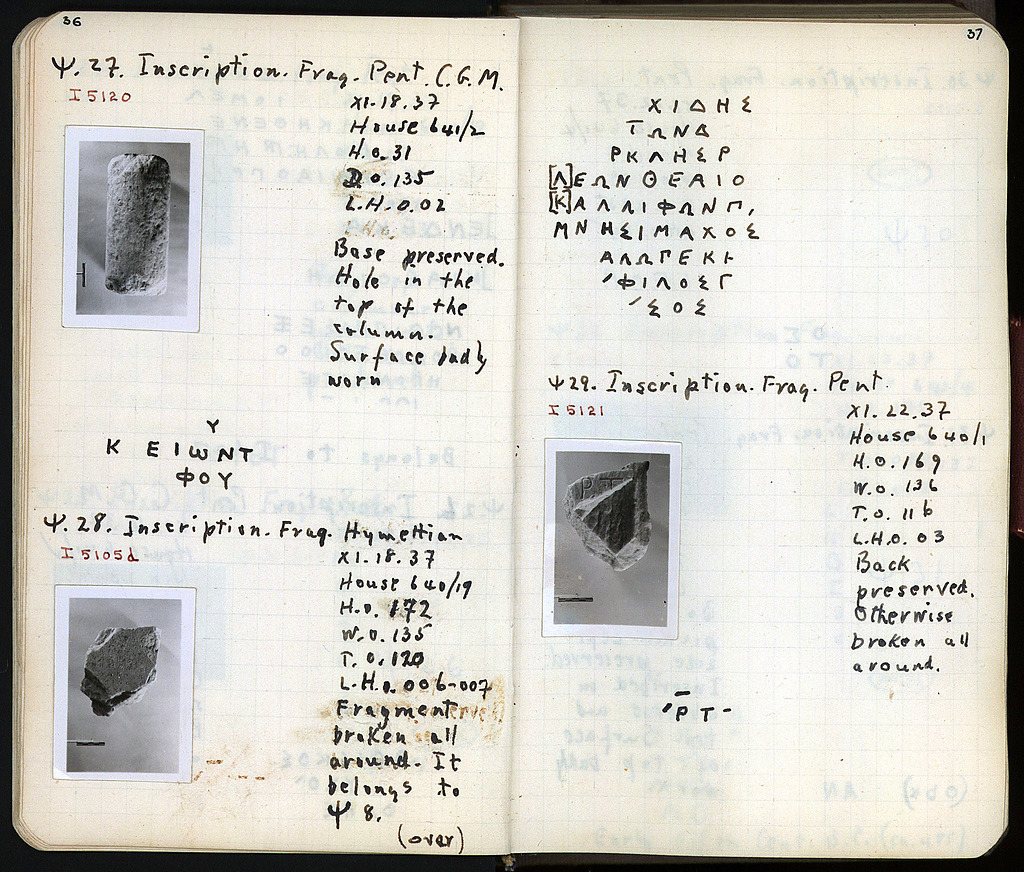 36
Ψ. 27. Inscription. Frag. Pent. C.G.M.
I 5120
XI. 18. 37
House 641/2
H.0.31
D.0.135
L.H.0.02
Base preserved.
Hole in the
top of the
column.
Surface badly
worn
Υ
Κ ΕΙωΝΤ
ΦΟΥ
Ψ. 28. Inscription. Frag. Hymettian
I 5105d
XI. 18. 37
House 640/19
H.0. 172
W.0. 135
T. 0. 120
L.H.0.006-007
Fragment
broken all
around. It
belongs to
Ψ 8.
(over)
37
ΧΙΔΗΣ
ΤΩΝΔ
ΡΚΛΗΣΡ
[Λ]ΕΩΝΘΕΑΙΟ
[Κ]ΑΛΛΙΦΩΝΠ,
ΜΝΗΣΙΜΑΧΟΣ
ΑΛΩΠΕΚΗ
ΦΙΛΟΣΓ
ΣΟΣ
Ψ29. Inscription. Frag. Pent.
I 5121
XI. 22. 37
House 640/1
H.0. 169
W.0. 136
T.0. 116
L.H.0. 03
Back
preserved.
Otherwise
broken all
around.
ΡΤ